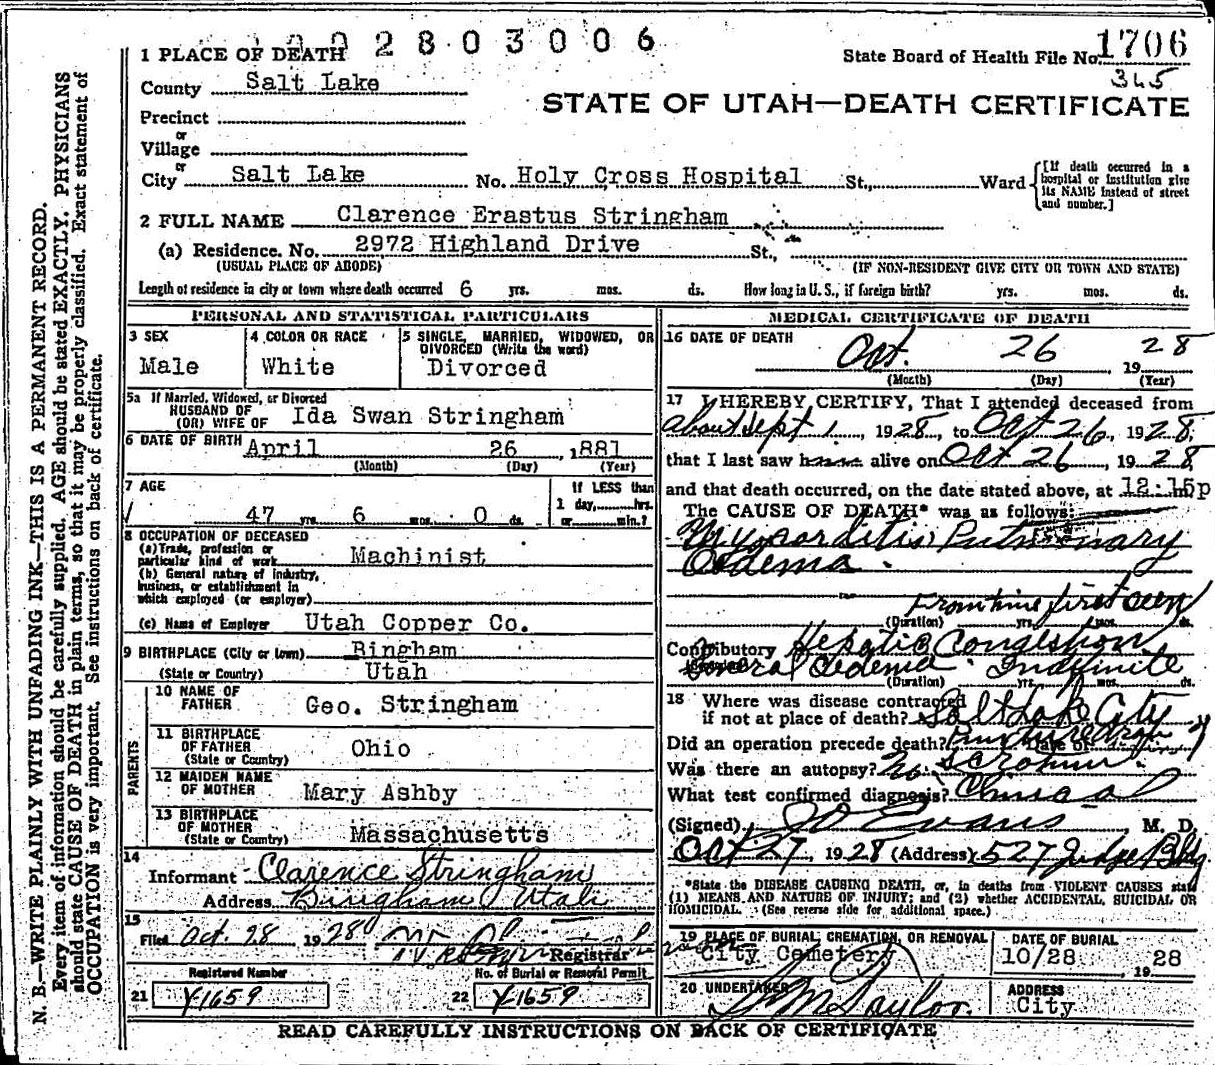 2 8 0 3 0 0 6
1 PLACE OF DEATH
State Board of Health File No. 1706
County Salt Lake
345
STATE OF UTAH—DEATH CERTIFICATE
Precinct
or
Village
or
City Salt Lake No. Holy Cross Hospital St., Ward
[If death occurred in a hospital or institution give its NAME instead of street and number.]
2 FULL NAME Clarence Erastus Stringham
(a) Residence. No. 2972 Highland Drive St.,
(USUAL PLACE OF ABODE) (IF NON-RESIDENT GIVE CITY OR TOWN AND STATE)
Length of residence in city or town where death occurred 6 yrs. mos. ds. How long in U. S., if foreign birth? yrs. mos. ds.
PERSONAL AND STATISTICAL PARTICULARS
3 SEX
Male
4 COLOR OR RACE
White
5 SINGLE, MARRIED, WIDOWED, OR
DIVORCED (Write the word)
Divorced
5a If Married, Widowed, or Divorced
HUSBAND OF
(OR) WIFE OF Ida Swan Stringham
6 DATE OF BIRTH April 26, 1881
(Month) (Day) (Year)
7 AGE
47 yrs. 6 mos. 0 ds.
If LESS than
1 day, hrs.
or min.?
8 OCCUPATION OF DECEASED
(a) Trade, profession or
particular kind of work Machinist
(b) General nature of industry,
business, or establishment in
which employed (or employer)
(c) Name of Employer Utah Copper Co.
9 BIRTHPLACE (City or town) Bingham
(State or Country) Utah
PARENTS
10 NAME OF
FATHER Geo. Stringham
11 BIRTHPLACE
OF FATHER Ohio
(State or Country)
12 MAIDEN NAME
OF MOTHER Mary Ashby
13 BIRTHPLACE
OF MOTHER
(State or Country) Massachusetts
14
Informant Clarence Stringham
Address Bingham Utah
15
Filed Oct. 28 1928
Registrar
Registered Number
21 Y-1659
No. of Burial or Removal Permit
22 Y-1659
MEDICAL CERTIFICATE OF DEATH
16 DATE OF DEATH
Oct. 26 1928
(Month) (Day) (Year)
17 I HEREBY CERTIFY, That I attended deceased from
about Sept 1, 1928, to Oct 26, 1928,
that I last saw him alive on Oct 26, 1928
and that death occurred, on the date stated above, at 12:15p
The CAUSE OF DEATH* was as follows:
Myocarditis Pulmonary
Oedema.
From time first seen
(Duration) yrs. mos. ds.
Contributory Hepatic Congestion
General Oedema Indefinite
(Duration) yrs. mos. ds.
18 Where was disease contracted
if not at place of death? Salt Lake City
Did an operation precede death? Date of
Was there an autopsy? No scrotum.
What test confirmed diagnosis? Clinical
(Signed) Evans M. D.
Oct 27, 1928 (Address) 527 Judge Bldg
*State the DISEASE CAUSING DEATH, or, in deaths from VIOLENT CAUSES state
(1) MEANS AND NATURE OF INJURY; and (2) whether ACCIDENTAL, SUICIDAL OR
HOMICIDAL. (See reverse side for additional space.)
19 PLACE OF BURIAL, CREMATION, OR REMOVAL
City Cemetery
DATE OF BURIAL
10/28 1928
20 UNDERTAKER
Taylor.
ADDRESS
City
READ CAREFULLY INSTRUCTIONS ON BACK OF CERTIFICATE
N. B.—WRITE PLAINLY WITH UNFADING INK—THIS IS A PERMANENT RECORD.
Every item of information should be carefully supplied. AGE should be stated EXACTLY. PHYSICIANS
should state CAUSE OF DEATH in plain terms, so that it may be properly classified. Exact statement of
OCCUPATION is very important. See instructions on back of certificate.